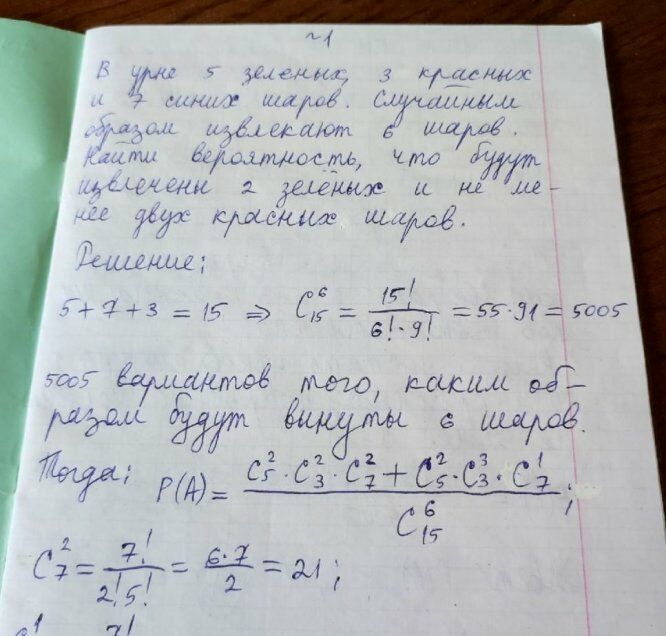 ~1
В урне 5 зеленых, 3 красных
и 7 синих шаров. Случайным
образом извлекают 6 шаров.
Найти вероятность, что будут
извлечены 2 зелёных и не ме-
нее двух красных шаров.
Решение:
5+7+3 = 15 ⇒ C₁₅⁶ = 15!/(6!·9!) = 55·91 = 5005
5005 вариантов того, каким об-
разом будут вынуты 6 шаров.
Тогда: P(A) = (C₅²·C₃²·C₇² + C₅²·C₃³·C₇¹)/C₁₅⁶;
C₇² = 7!/(2!5!) = 6·7/2 = 21;